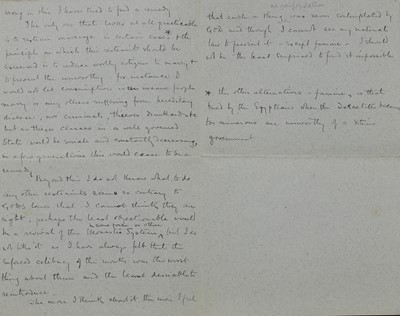 away in this I have tried to find a remedy
The only one that looks at all practicable
is to restrain marriage in certain cases * the
principle on which this restraint should be
to induce worthy citizens to marry &
to prevent the unworthy for instance I
would not let consumptive or insane people
marry or any others suffering from hereditary
disease, nor criminals, thieves drunkards etc
but as these classes in a well governed
State would be small and constantly decreasing,
in a few generations this would cease to be a
remedy
Beyond this I do not know what to do
any other restraints seem so contrary to
God's laws that I cannot think they are
right, perhaps the least objectionable would
be a revival of the Monastic System, in some form or other but I do
not like it as I have always felt that the
enforced celibacy of the monks was the worst
thing about them and the least desirable to
reintroduce.
The more I think about it the more I feel
that such a thing was never contemplated by
God and though I cannot see any natural
law to prevent it except famine I should
not be the least surprised to find it impossible
* the other alternative is that
tried by the Egyptians when the Israelites became
too numerous are unworthy of a Xtian
government